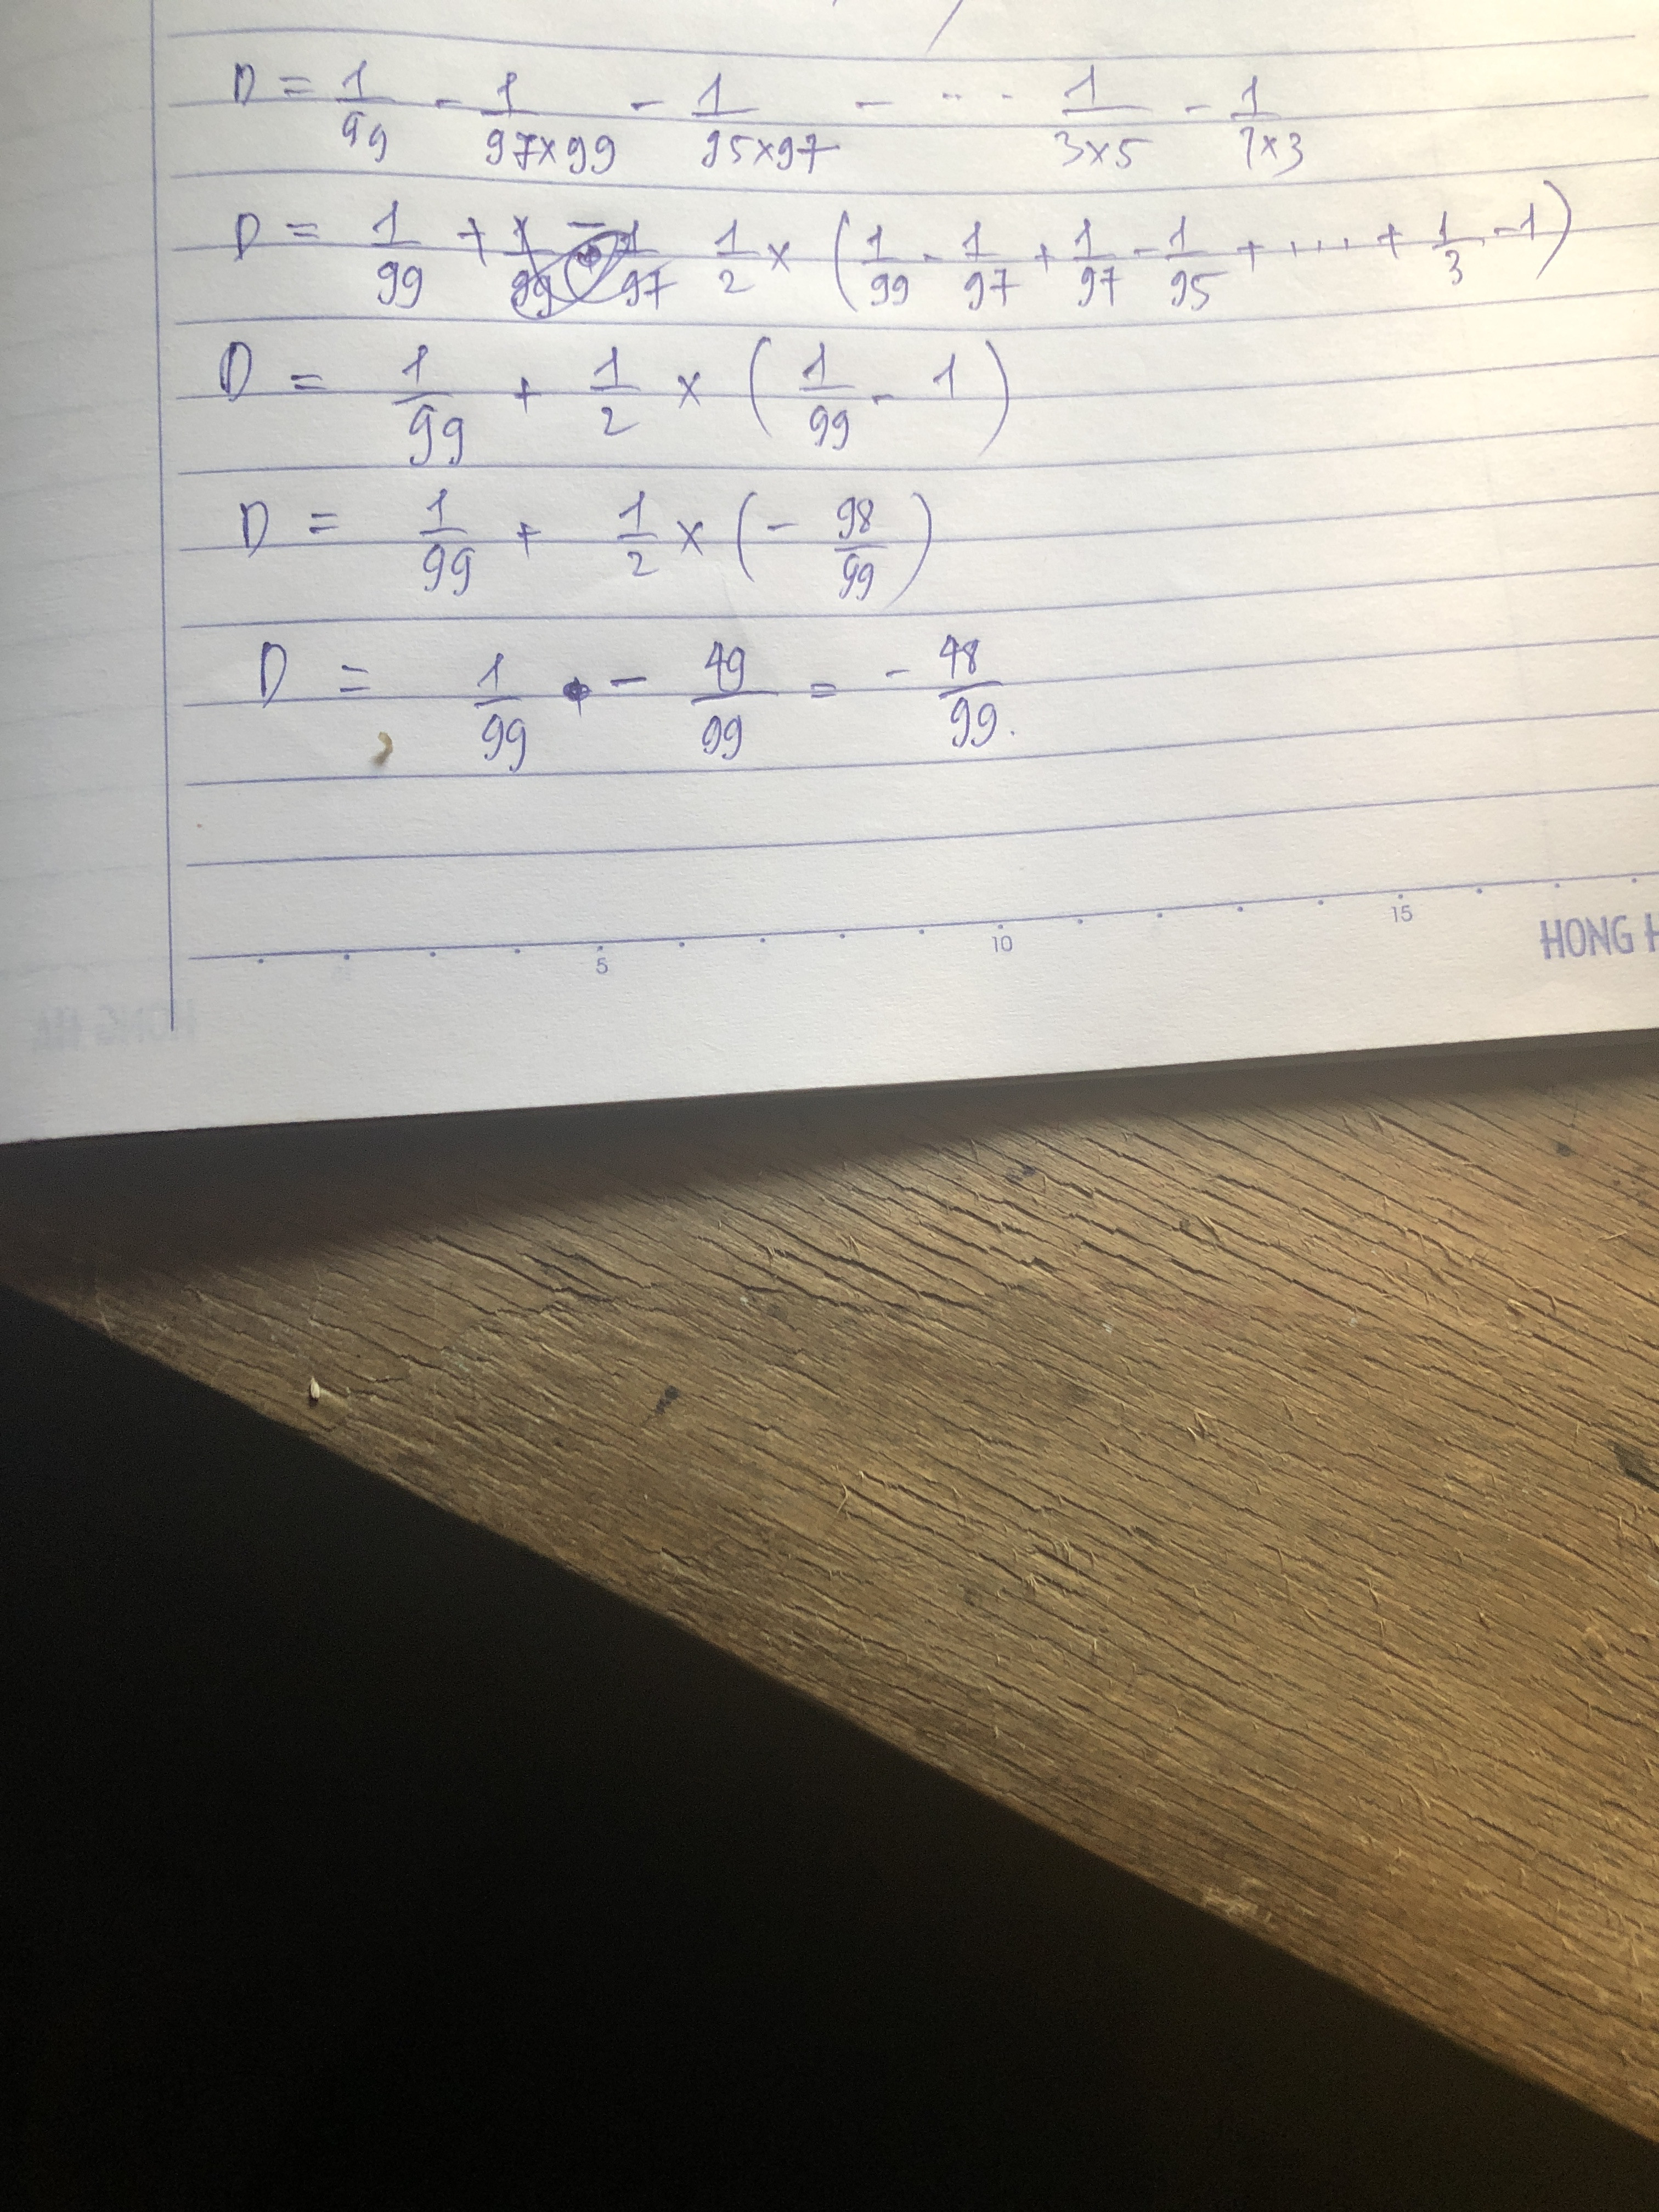 D = 1/99 - 1/97×99 - 1/95×97 - ... 1/3×5 - 1/1×3
D = 1/99 + 1/2 × (1/99 - 1/97 + 1/97 - 1/95 + .... + 1/3 - 1)
D = 1/99 + 1/2 × (1/99 - 1)
D = 1/99 + 1/2 × (- 98/99)
D = 1/99 - 49/99 = - 48/99.
5 10 15
HONG H